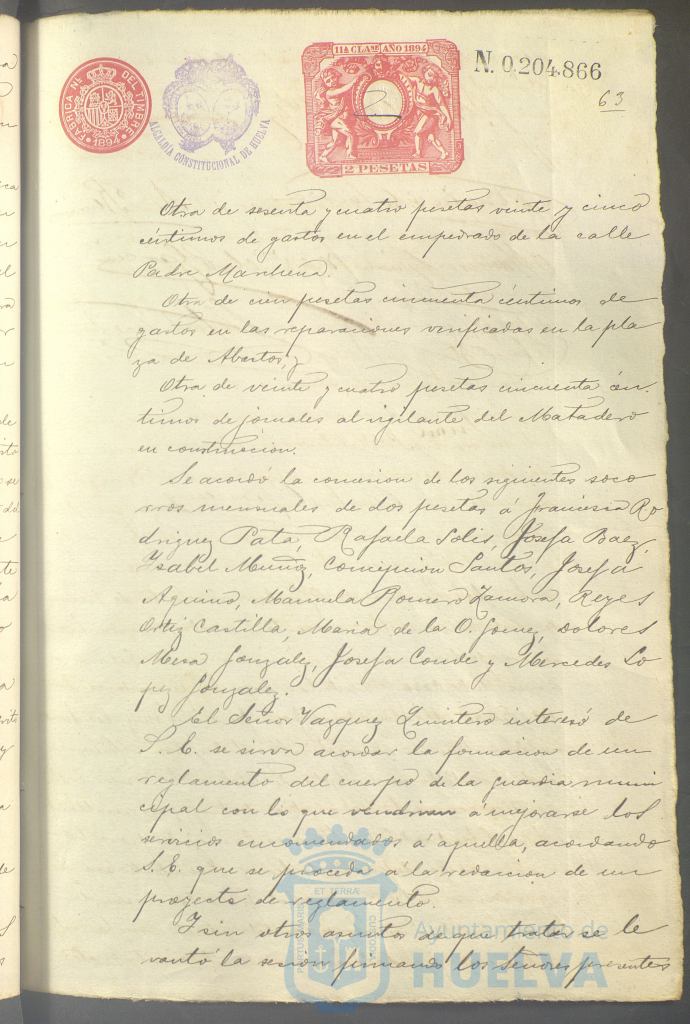 FÁBRICA Nl. DEL TIMBRE
1894
ALCALDÍA CONSTITUCIONAL DE HUELVA
11A CLASE AÑO 1894
2 PESETAS
N. 0.204.866
63
Otra de sesenta y cuatro pesetas veinte y cinco
céntimos de gastos en el empedrado de la calle
Padre Marchena.
Otra de cien pesetas cincuenta céntimos de
gastos en las reparaciones verificadas en la pla
za de Abastos, y
Otra de veinte y cuatro pesetas cincuenta cén-
timos de jornales al vigilante del Matadero
en construccion.
Se acordó la concesion de los siguientes soco
rros mensuales de dos pesetas á Francisca Ro
driguez Pata, Rafaela Solis, Josefa Baez,
Isabel Muñoz, Concepcion Santos, Josefa
Aquino, Manuela Romero Zamora, Reyes
Ortiz Castilla, Maria de la O. Gomez, Dolores
Mesa Gonzalez, Josefa Conde y Mercedes Lo
pez Gonzalez.
El Señor Vazquez Quintero interesó de
S. E. se sirva acordar la formacion de un
reglamento del cuerpo de la guardia muni
cipal con lo que vendrian á mejorarse los
servicios encomendados á aquella, acordando
S. E. que se proceda á la redaccion de un
proyecto de reglamento.
Y sin otros asuntos de que tratar se le
vantó la sesión firmando los Señores presentes
ET TERRÆ
PORTUS MARIS
CUSTODIA
Ayuntamiento de
HUELVA